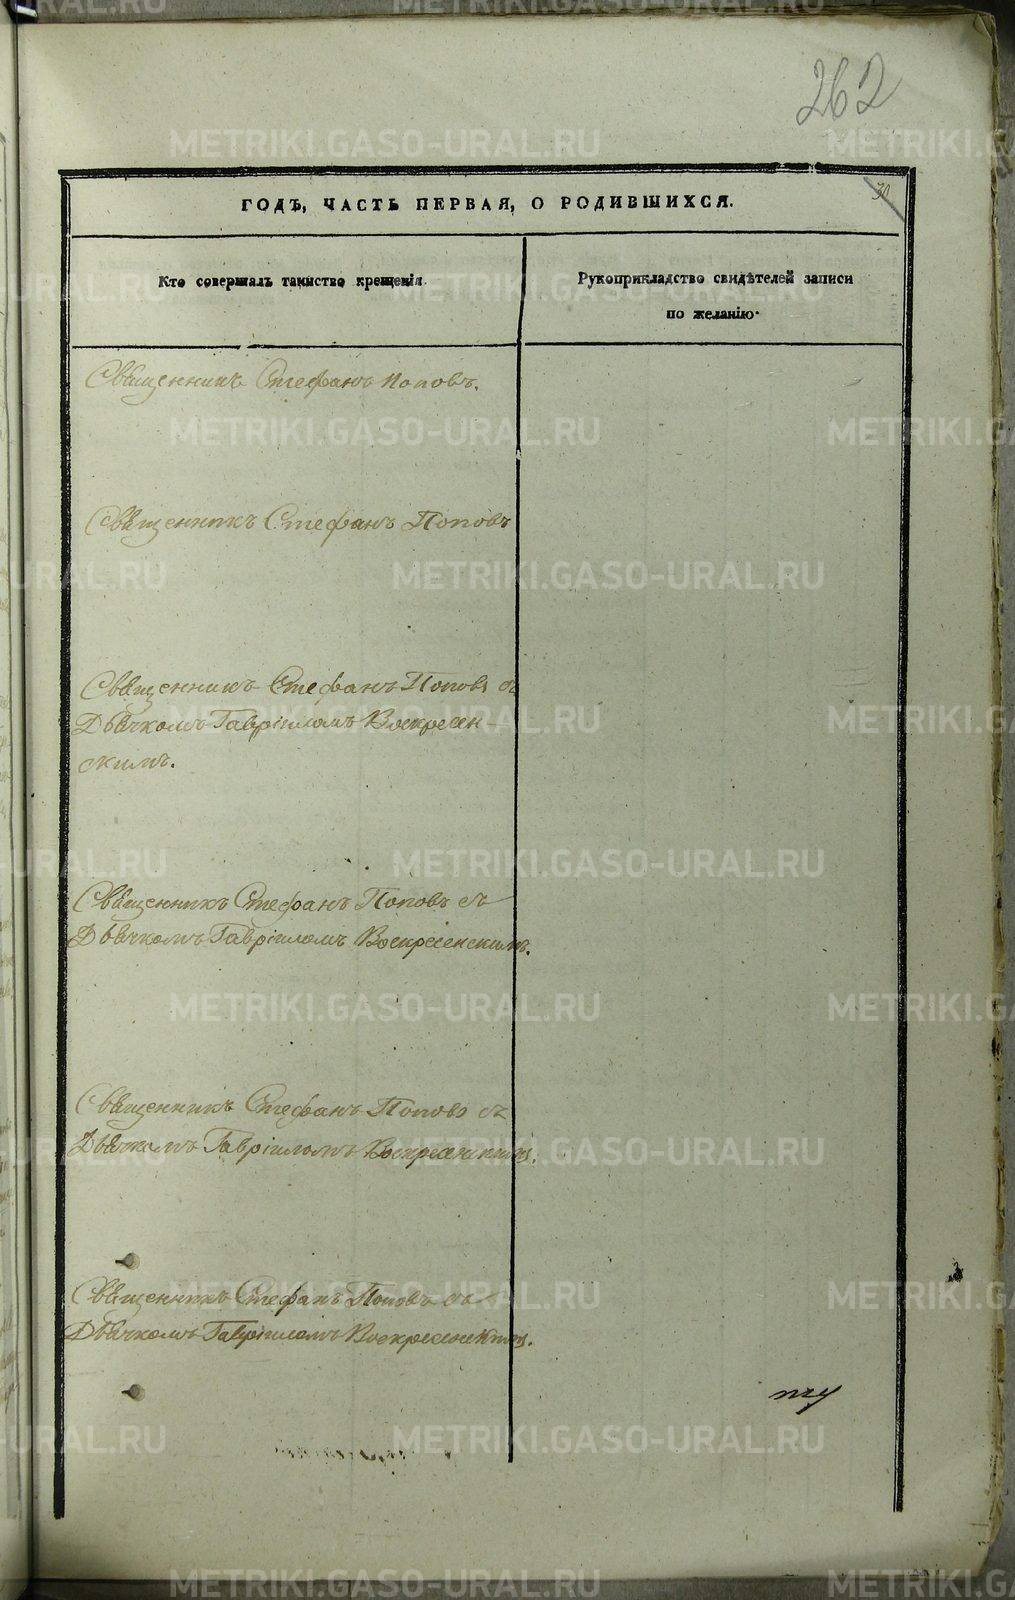 262
30
ГОДЪ, ЧАСТЬ ПЕРВАЯ, О РОДИВШИХСЯ.
Кто совершалъ таинство крещенія.
Рукоприкладство свидѣтелей записи
по желанію.
Священникъ Стефанъ Поповъ.
Священникъ Стефанъ Поповъ
Священникъ Стефанъ Поповъ съ
Дьячкомъ Гавріиломъ Воскресен-
скимъ.
Священникъ Стефанъ Поповъ съ
Дьячкомъ Гавріиломъ Воскресенскимъ.
Священникъ Стефанъ Поповъ съ
Дьячкомъ Гавріиломъ Воскресенскимъ.
Священникъ Стефанъ Поповъ съ
Дьячкомъ Гавріиломъ Воскресенскимъ.
METRIKI.GASO-URAL.RU